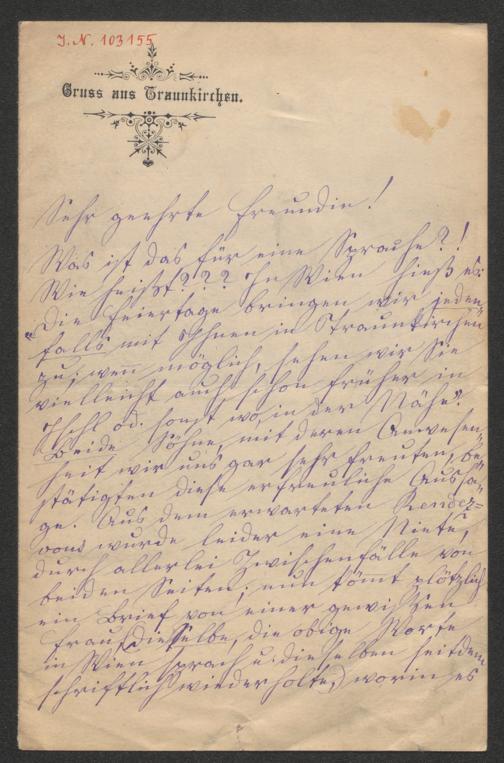 J.N. 103155
Gruss aus Traunkirchen.
Sehr geehrte Freundin!
Was ist das für eine Sprache?!
Wie heißt??? In Wien hieß es:
"Die Feiertage bringen wir jeden-
falls mit Ihnen in Traunkirchen
zu; wen möglich, sehen wir Sie
vielleicht auch schon früher in
Ischl od. sonst wo, in der Nähe".
Beide Söhne, mit deren Anwesen-
heit wir uns gar sehr freuten, be-
stätigten diese erfreuliche Aussa-
ge. Aus dem erwarteten Rendez-
vous wurde leider eine Niete,
durch allerlei Zwischenfälle von
beiden Seiten; nun kömt plötzlich
ein Brief von einer gewissen
Frau, (dieselbe, die obige Worte
in Wien sprach u. dieselben seitdem
schriftlich wiederholte,) worin es